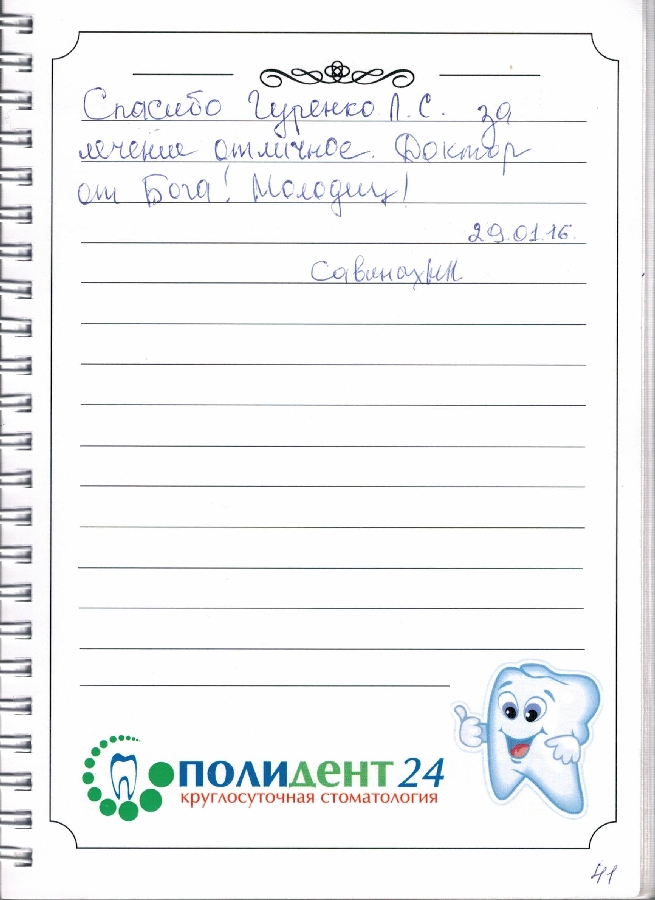 Спасибо Гуренко Л. С. за
лечение отличное. Доктор
от Бога! Молодец!
29.01.16.
ПОЛИДЕНТ 24
круглосуточная стоматология
41